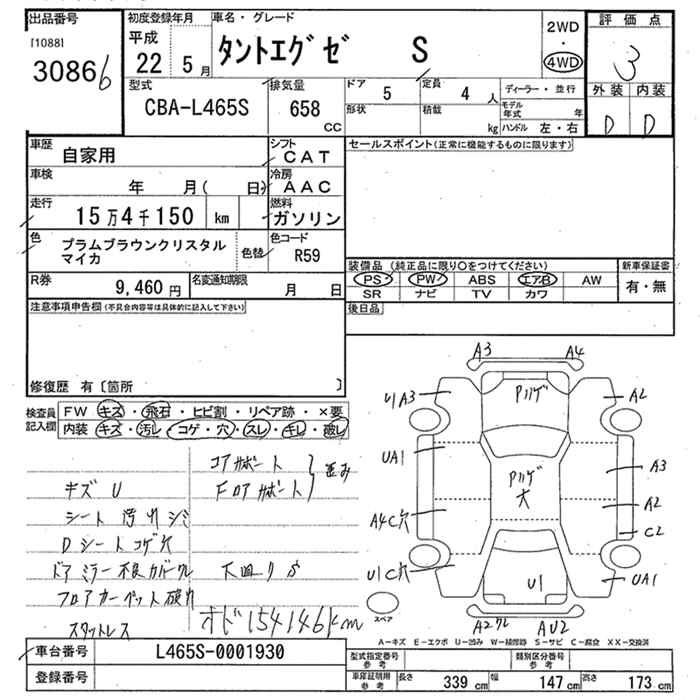 出品番号 初度登録年月 車名・グレード 2WD 評価点
[1088] 平成 タントエグゼ S ・ 3
3086 22 5月 4WD
型式 排気量 ドア 5 定員 4人 ディーラー・並行 外装 内装
CBA-L465S 658 CC 形状 積載 kg モデル年式 年 D D
ハンドル 左・右
車歴 自家用 シフト CAT セールスポイント(正常に機能するものに限ります)
車検 年 月( 日) 冷房 AAC
走行 15万4千150 km 燃料 ガソリン
色 プラムブラウンクリスタル 色替 色コード
マイカ R59
装備品(純正品に限り○をつけてください) 新車保証書
R券 9,460円 名変通知期限 月 日 PS PW ABS エアB AW 有・無
SR ナビ TV カワ
注意事項申告欄(不具合内容等は具体的に記入して下さい) 後日品
修復歴 有〔箇所 〕
検査員記入欄 FW キズ・飛石・ヒビ割・リペア跡・×要
内装 キズ・汚レ・コゲ・穴・スレ・キレ・破レ
コアサポート
キズ U Fロアサポート
シート汚れシミ
Dシートコゲ穴
ドアミラー不良カバーワレ
フロアカーペット破れ
スタットレス オド154146km
A3 A4
UA3 Pハゲ A2
UA1 Pハゲ 大 A3
A2
A4C穴 C2
U1C穴 U1 UA1
スペア A2ワレ AU2
A−キズ E−エクボ U−凹み W−補修跡 S−サビ C−腐食 XX−交換済
車台番号 L465S-0001930 型式指定番号 参考 類別区分番号 参考
登録番号 車庫証明用 参考 長さ 339cm 幅 147cm 高さ 173cm